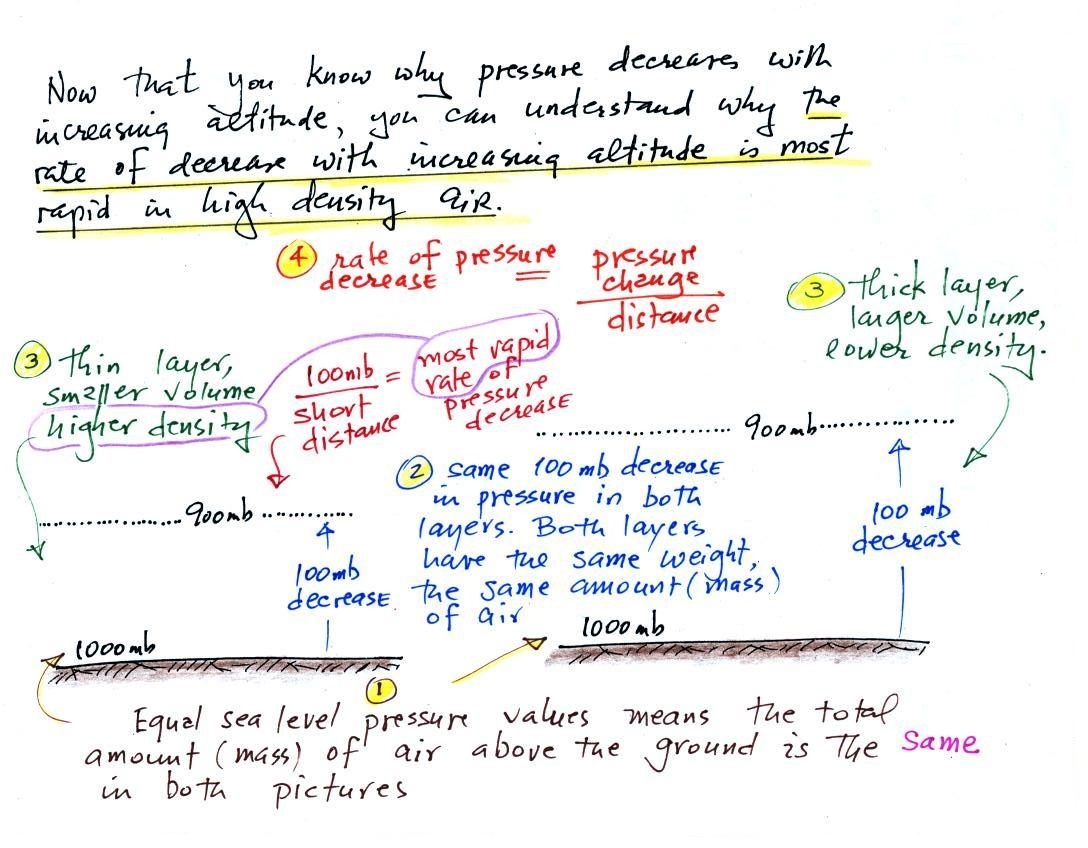 Now that you know why pressure decreases with
increasing altitude, you can understand why the
rate of decrease with increasing altitude is most
rapid in high density air.
4 rate of pressure
decrease
=
pressure
change
distance
3 thick layer,
larger volume,
lower density.
3 thin layer,
smaller volume
higher density
100mb
short
distance
=
most rapid
rate of
pressure
decrease
900mb
2 same 100 mb decrease
in pressure in both
layers. Both layers
have the same weight,
the same amount (mass)
of air
900mb
100mb
decrease
100 mb
decrease
1000mb
1000mb
1
Equal sea level pressure values means the total
amount (mass) of air above the ground is the same
in both pictures